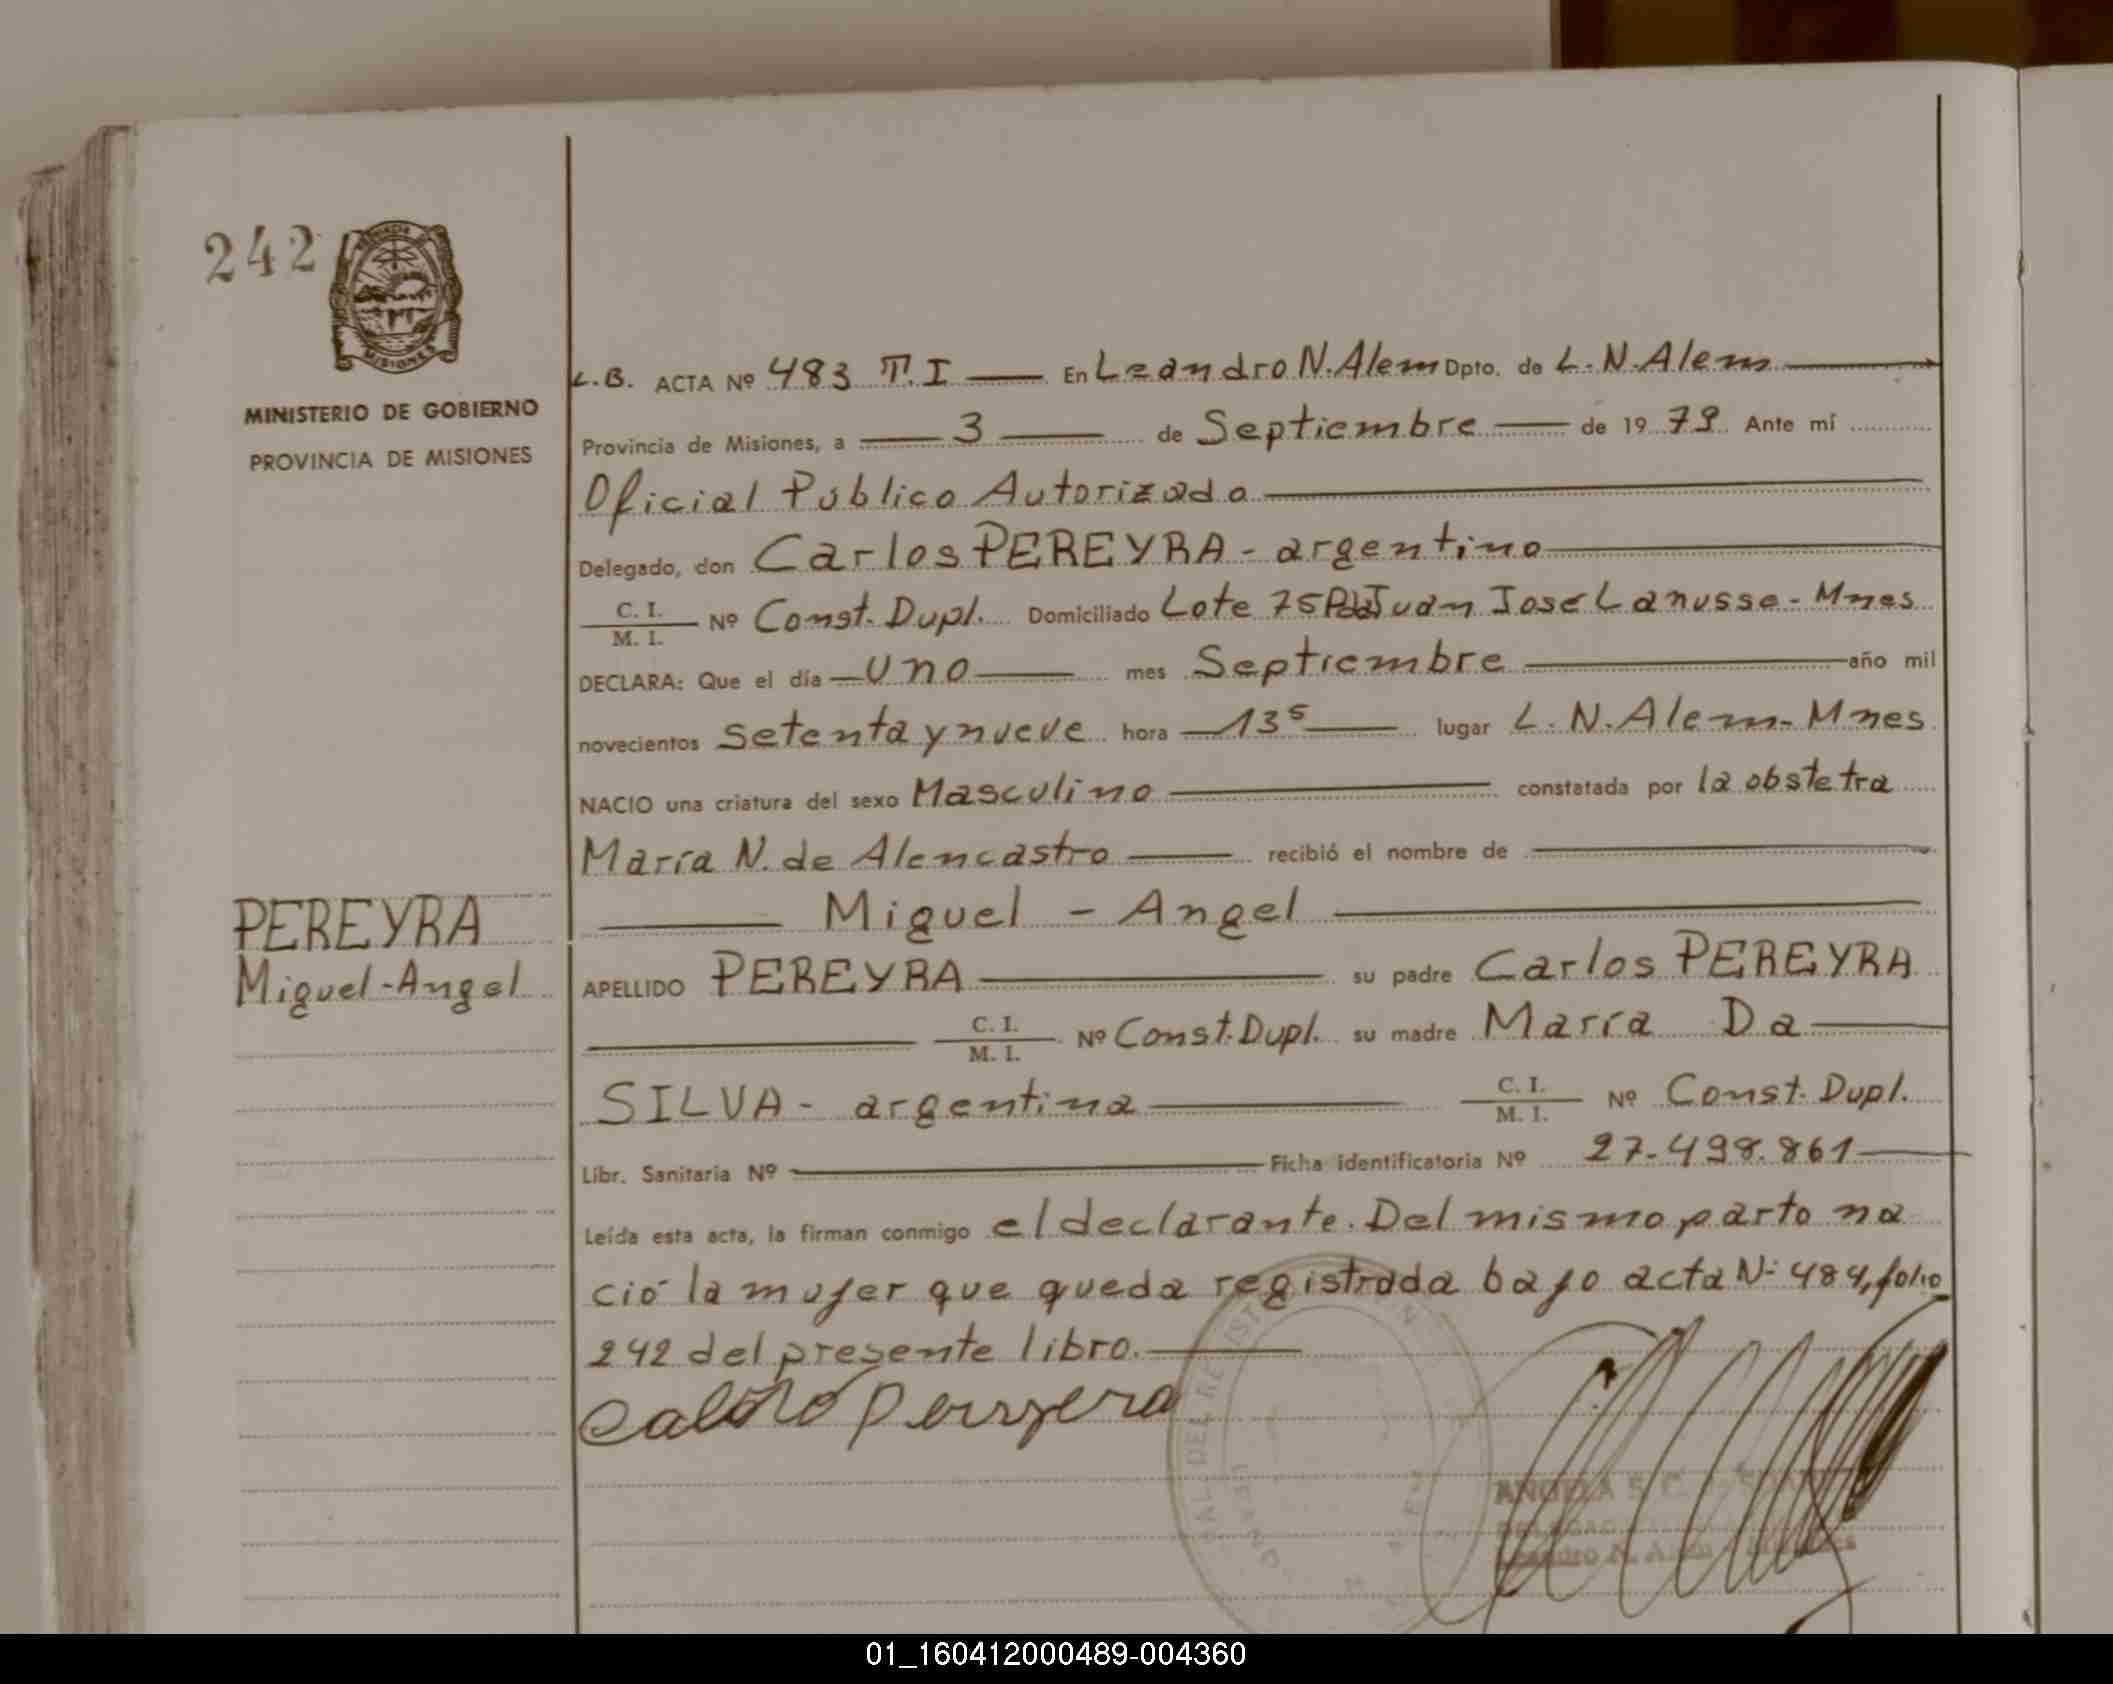 242
MISIONES
MINISTERIO DE GOBIERNO
PROVINCIA DE MISIONES
PEREYRA
Miguel-Angel
L.B. ACTA Nº 483 T.I — En Leandro N. Alem Dpto. de L.N.Alem
Provincia de Misiones, a — 3 — de Septiembre — de 19 79 Ante mí
Oficial Público Autorizado
Delegado, don Carlos PEREYRA - argentino
C. I. / M. I. Nº Const. Dupl. Domiciliado Lote 75 Juan José Lanusse - Mnes
DECLARA: Que el día — uno — mes Septiembre — año mil
novecientos setenta y nueve hora — 13⁵ — lugar L. N. Alem - Mnes
NACIO una criatura del sexo Masculino — constatada por la obstetra
María N. de Alencastro — recibió el nombre de —
— Miguel - Angel —
APELLIDO PEREYRA — su padre Carlos PEREYRA
— C. I. / M. I. Nº Const. Dupl. su madre María Da —
SILVA - argentina — C. I. / M. I. Nº Const. Dupl.
Libr. Sanitaria Nº — Ficha identificatoria Nº 27-498.861 —
Leída esta acta, la firman conmigo el declarante. Del mismo parto na
ció la mujer que queda registrada bajo acta Nº 484, folio
242 del presente libro. —
01_160412000489-004360